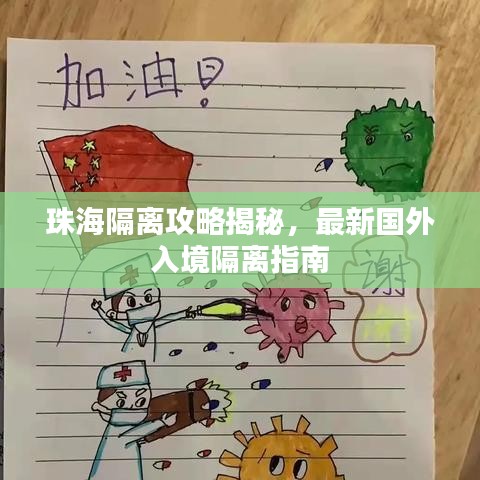 加油!
珠海隔离攻略揭秘，最新国外
入境隔离指南
谢
谢